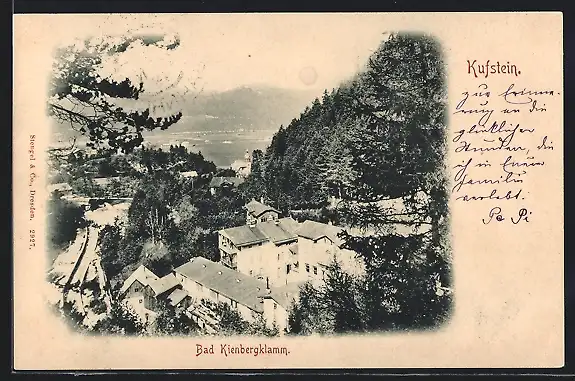 Kufstein.
zur Erinne-
rung an die
glücklichen
Stunden, die
ich in Euerer
Familie
verlebt.
Stengel & Co., Dresden. 2927.
Bad Kienbergklamm.